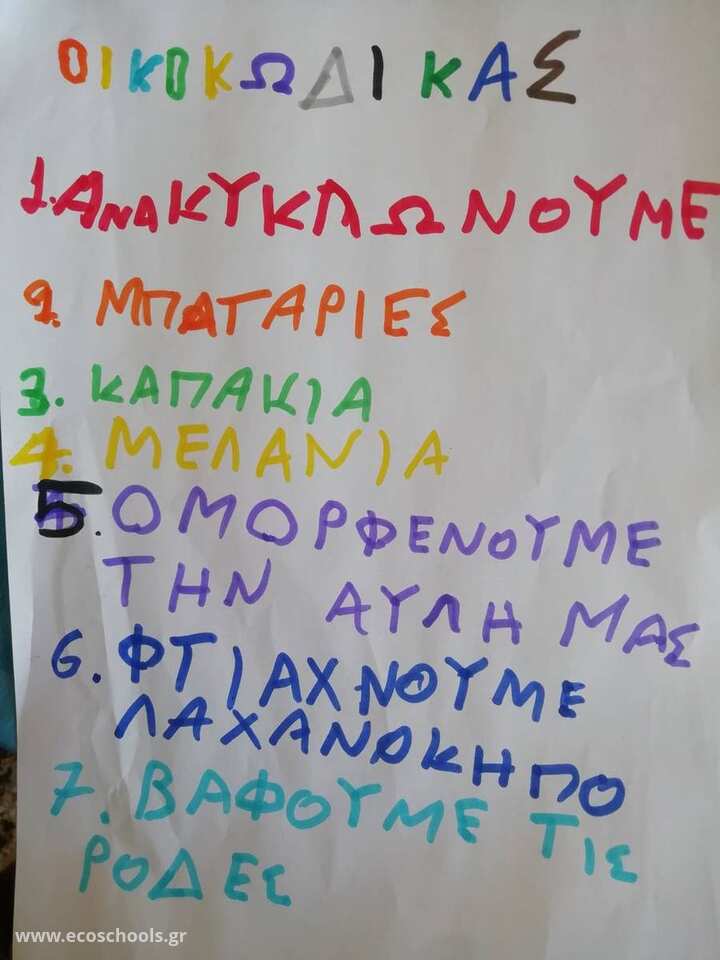 ΟΙΚΟΚΩΔΙΚΑΣ
1. ΑΝΑΚΥΚΛΩΝΟΥΜΕ
2. ΜΠΑΤΑΡΙΕΣ
3. ΚΑΠΑΚΙΑ
4. ΜΕΛΑΝΙΑ
5. ΟΜΟΡΦΕΝΟΥΜΕ
ΤΗΝ ΑΥΛΗ ΜΑΣ
6. ΦΤΙΑΧΝΟΥΜΕ
ΛΑΧΑΝΟΚΗΠΟ
7. ΒΑΦΟΥΜΕ ΤΙΣ
ΡΟΔΕΣ
www.ecoschools.gr